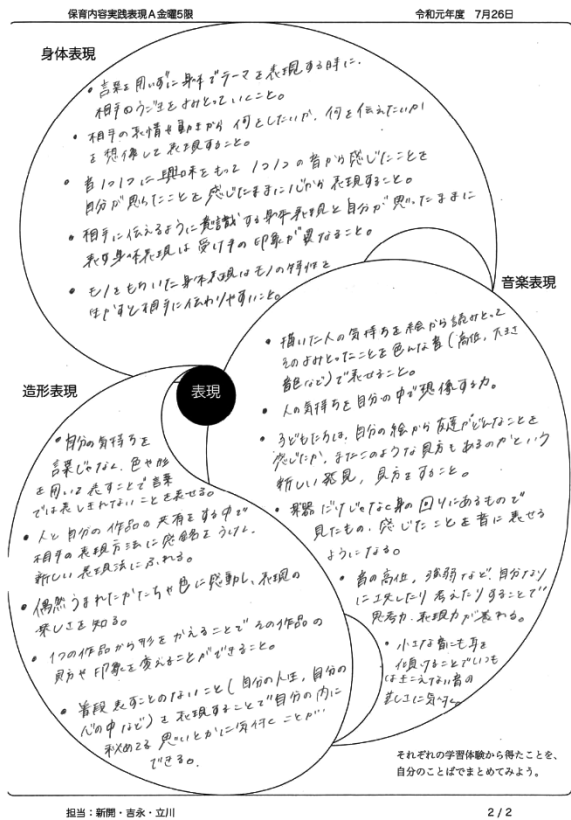 保育内容実践表現A金曜5限
令和元年度 7月26日
身体表現
・言葉を用いずに身体でテーマを表現する時に、
相手の を よみとっていくこと。
・相手の表情や動きから何をしたいか、何を伝えたいか
を想像して表現すること。
・音1つ1つに興味をもって1つ1つの音から感じたことを
自分が思ったことを感じたままに心から表現すること。
・相手に伝えるように意識する身体表現と自分が思ったままに
表す身体表現は受け手の印象が異なること。
・モノをもちいた身体表現はモノの特性を
生かすと相手に伝わりやすいこと。
音楽表現
・描いた人の気持ちを絵から読みとって
そのよみとったことを色んな音(高低、大きさ
音色など)で表せること。
・人の気持ちを自分の中で想像する力。
・子どもたちは、自分の絵から友達がどんなことを
感じたか、またこのような見方もあるのかという
新しい発見、見方をすること。
・楽器だけじゃなく身の回りにあるもので
見たもの、感じたことを音に表せる
ようになる。
・音の高低、強弱など、自分なり
に工夫したり考えたりすることで
思考力、表現力が養われる。
・小さな音にも耳を
傾けることでいつも
はきこえない音の
楽しさに気づく。
造形表現
表現
・自分の気持ちを
言葉じゃなく、色や形
を用いて表すことで言葉
では表しきれないことを表せる。
・人と自分の作品の共有をする中で
相手の表現方法に感銘をうけ、
新しい表現法にふれる。
・偶然うまれたかたちや色に感動し、表現の
楽しさを知る。
・1つの作品から形をかえることでその作品の
見方や印象を変えることができること。
・普段表すことのないこと(自分の人生、自分の
心の中など)を表現することで自分の内に
秘めてる思いとかに気付くことが
できる。
それぞれの学習体験から得たことを、
自分のことばでまとめてみよう。
担当:新開・吉永・立川
2/2